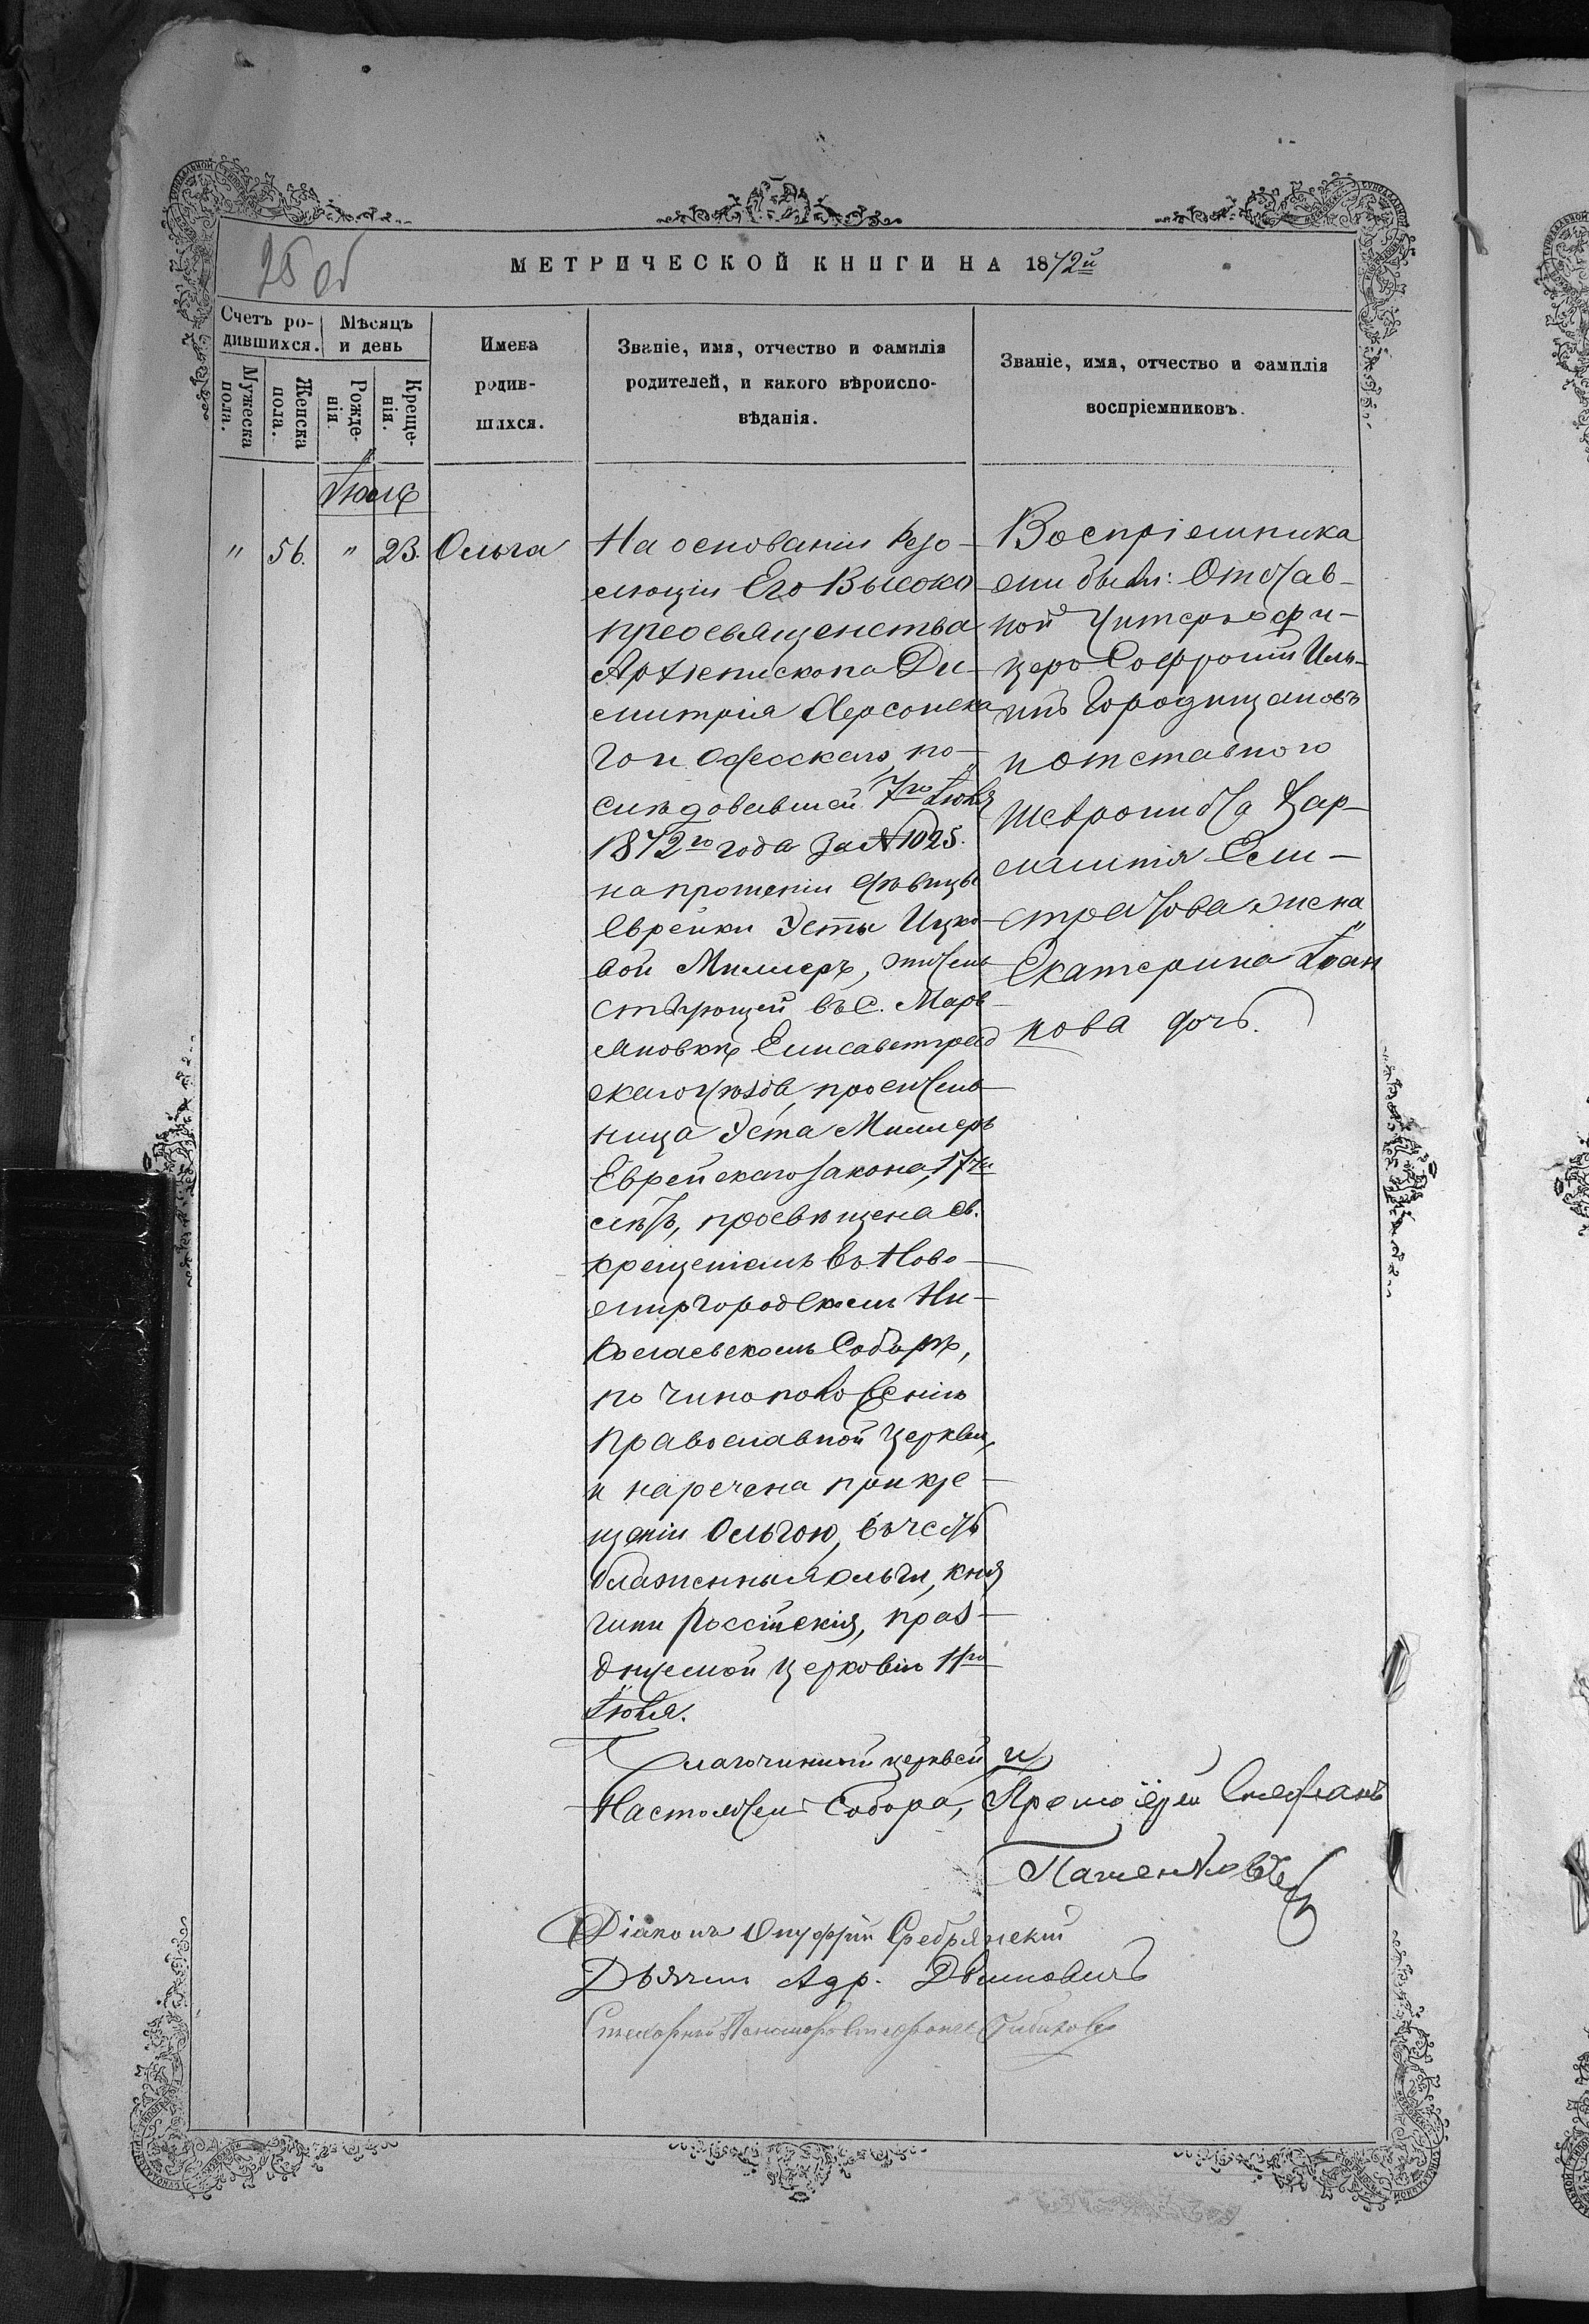 25 об
МЕТРИЧЕСКОЙ КНИГИ НА 1872й
Счетъ ро-
дившихся.
Мѣсяцъ
и день
Имена
родив-
шихся.
Званіе, имя, отчество и фамилія
родителей, и какого вѣроиспо-
вѣданія.
Званіе, имя, отчество и фамилія
воспріемниковъ.
Мужеска
пола.
Женска
пола.
Рожде-
нія
Креще-
нія.
Іюль
" 56. " 23. Ольга
На основаніи резо-
люціи Его Высоко
преосвященства
Архіепископа Ди-
митрія Херсонска
го и Одесскаго, по-
слѣдовавшей 7го Іюля
1872го года за №1025.
на прошеніи дѣвицы
Еврейки Эсты Ицко-
вой Миллеръ, житель-
ствующей въ с. Марь-
яновкѣ Елисаветград
скаго уѣзда, просительница
ница Эста Миллеръ
Еврейскаго закона, 17ти
лѣтъ, просвѣщена св.
крещеніемъ въ Ново-
миргородскомъ Ни-
колаевскомъ Соборѣ,
по чиноположенію
Православной Церкви,
и наречена при кре-
щеніи Ольгою, въ честь
блаженныя Ольги, кня
гини Россійскія, праз-
днуемой церковію 11го
Іюля.
Воспріемника
ми были: Отстав-
ной Унтеръ-офи-
церъ Софроній Иль-
инъ Городищановъ
и отставного
Вахмистра
жена
Екатерина Іоан
нова дочь.
Благочинный церквей и
Настоятель Собора, Протоіерей Стефанъ
Діаконъ Онуфрій Сребрянскій
Дьячекъ Адр.